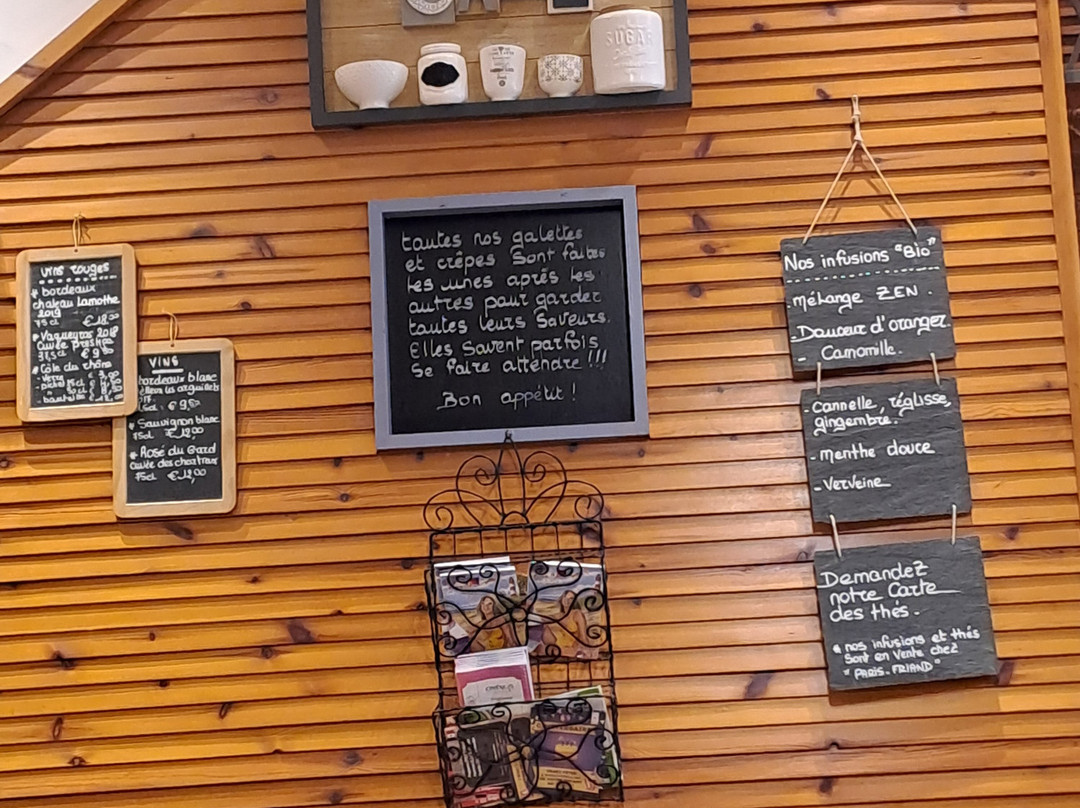 SUGAR
vins rouges
* bordeaux
chateau Lamothe
2019
75cl €18,00
* Vaqueyras 2018
Cuvée prestige
37,5cl €9,50
* Côte du rhône
- verre € 3,00
VINS
bordeaux blanc
€ 9,50
* Sauvignon blanc
75cl
* Rosé du Gard
cuvée des chartreux
75cl € 12,00
toutes nos galettes
et crêpes Sont faites
les unes après les
autres pour garder
toutes leurs Saveurs.
Elles Savent parfois
Se faire attendre !!!
Bon appétit !
Nos infusions "Bio"
- mélange ZEN.
- Douceur d'oranger
- Camomille.
- Cannelle, réglisse,
gingembre.
- menthe douce
- Verveine
Demandez
notre Carte
des thés.
* nos infusions et thés
Sont en Vente chez
"PARIS-FRIAND"